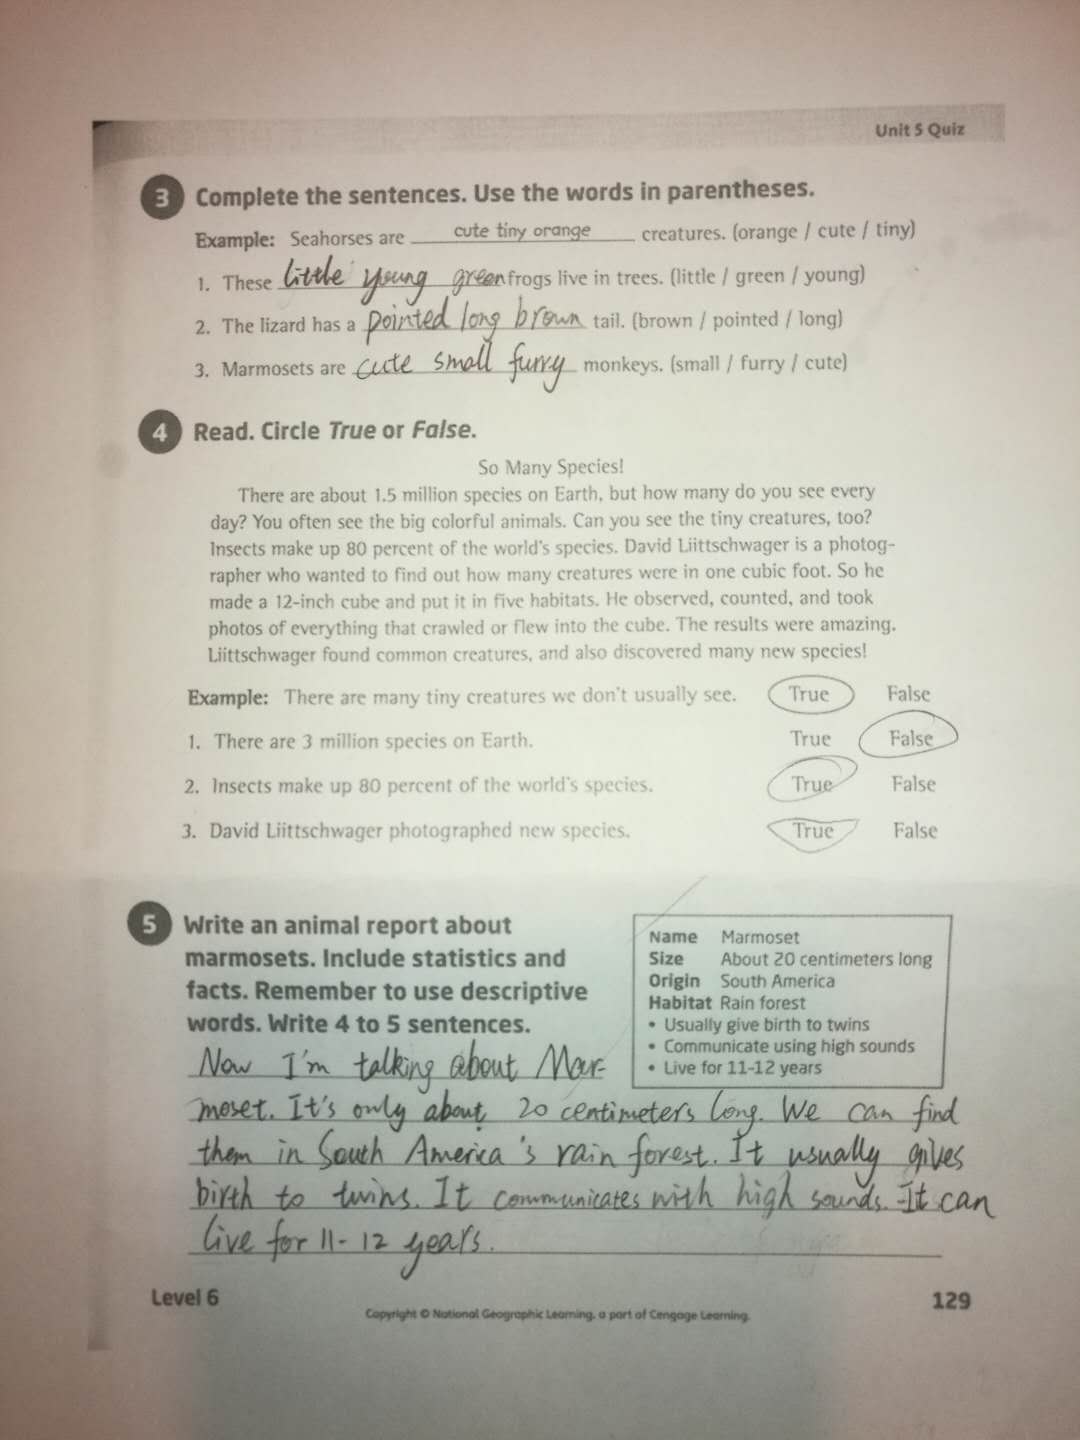 Unit 5 Quiz
3 Complete the sentences. Use the words in parentheses.
Example: Seahorses are cute tiny orange creatures. (orange / cute / tiny)
1. These little young green frogs live in trees. (little / green / young)
2. The lizard has a pointed long brown tail. (brown / pointed / long)
3. Marmosets are cute small furry monkeys. (small / furry / cute)
4 Read. Circle True or False.
So Many Species!
There are about 1.5 million species on Earth, but how many do you see every
day? You often see the big colorful animals. Can you see the tiny creatures, too?
Insects make up 80 percent of the world's species. David Liittschwager is a photog-
rapher who wanted to find out how many creatures were in one cubic foot. So he
made a 12-inch cube and put it in five habitats. He observed, counted, and took
photos of everything that crawled or flew into the cube. The results were amazing.
Liittschwager found common creatures, and also discovered many new species!
Example: There are many tiny creatures we don't usually see. True False
1. There are 3 million species on Earth. True False
2. Insects make up 80 percent of the world's species. True False
3. David Liittschwager photographed new species. True False
5 Write an animal report about
marmosets. Include statistics and
facts. Remember to use descriptive
words. Write 4 to 5 sentences.
Name Marmoset
Size About 20 centimeters long
Origin South America
Habitat Rain forest
• Usually give birth to twins
• Communicate using high sounds
• Live for 11-12 years
Now I'm talking about Mar-
moset. It's only about 20 centimeters long. We can find
them in South America's rain forest. It usually gives
birth to twins. It communicates with high sounds. It can
live for 11-12 years.
Level 6
129
Copyright © National Geographic Learning, a part of Cengage Learning.